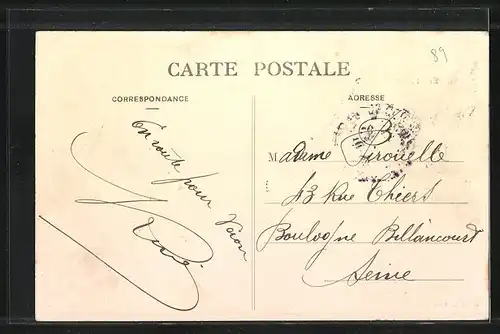 89
CARTE POSTALE
CORRESPONDANCE
ADRESSE
En route pour
Voron
René
B
Madame Girouelle
43 Rue Thiers
Boulogne Billancourt
Seine